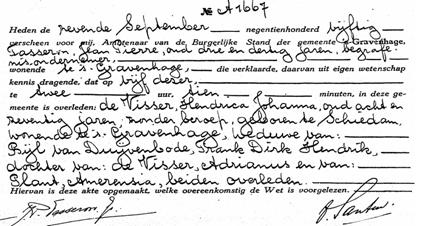 № A1667
Heden de zevende September negentienhonderd vijftig
verscheen voor mij, Ambtenaar van de Burgerlijke Stand der gemeente 's-Gravenhage,
Tasseron, Jan Pierre, oud drie en dertig jaren, begrafe-
nisondernemer,
wonende te 's-Gravenhage, die verklaarde, daarvan uit eigen wetenschap
kennis dragende, dat op vijf dezer,
te twee uur, tien minuten, in deze ge-
meente is overleden: de Visser, Hendrica Johanna, oud acht en
zeventig jaren, zonder beroep, geboren te Schiedam,
wonende te 's-Gravenhage, weduwe van:
Rijl van Duijvenbode, Frank Dirk Hendrik,
dochter van: de Visser, Adrianus en van:
Plant, Amerensia, beiden overleden.
Hiervan is deze akte opgemaakt, welke overeenkomstig de Wet is voorgelezen.
Tasseron